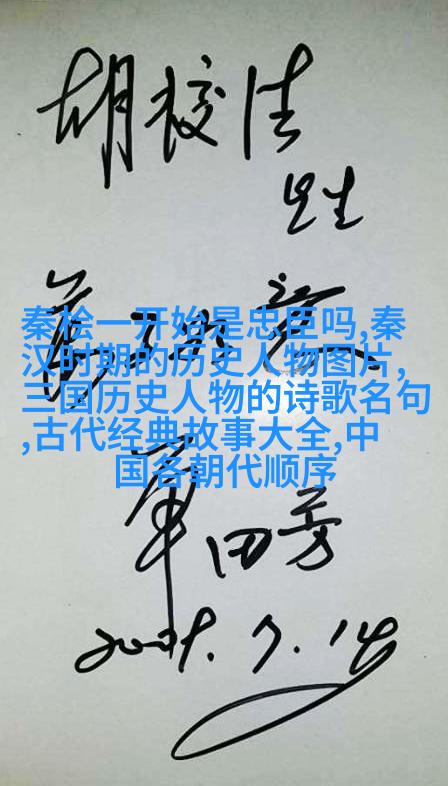 胡
先生
秦桧一开始是忠臣吗,秦
汉时期的历史人物图片,
三国历史人物的诗歌名句
,古代经典故事大全,中
国各朝代顺序
单田芳